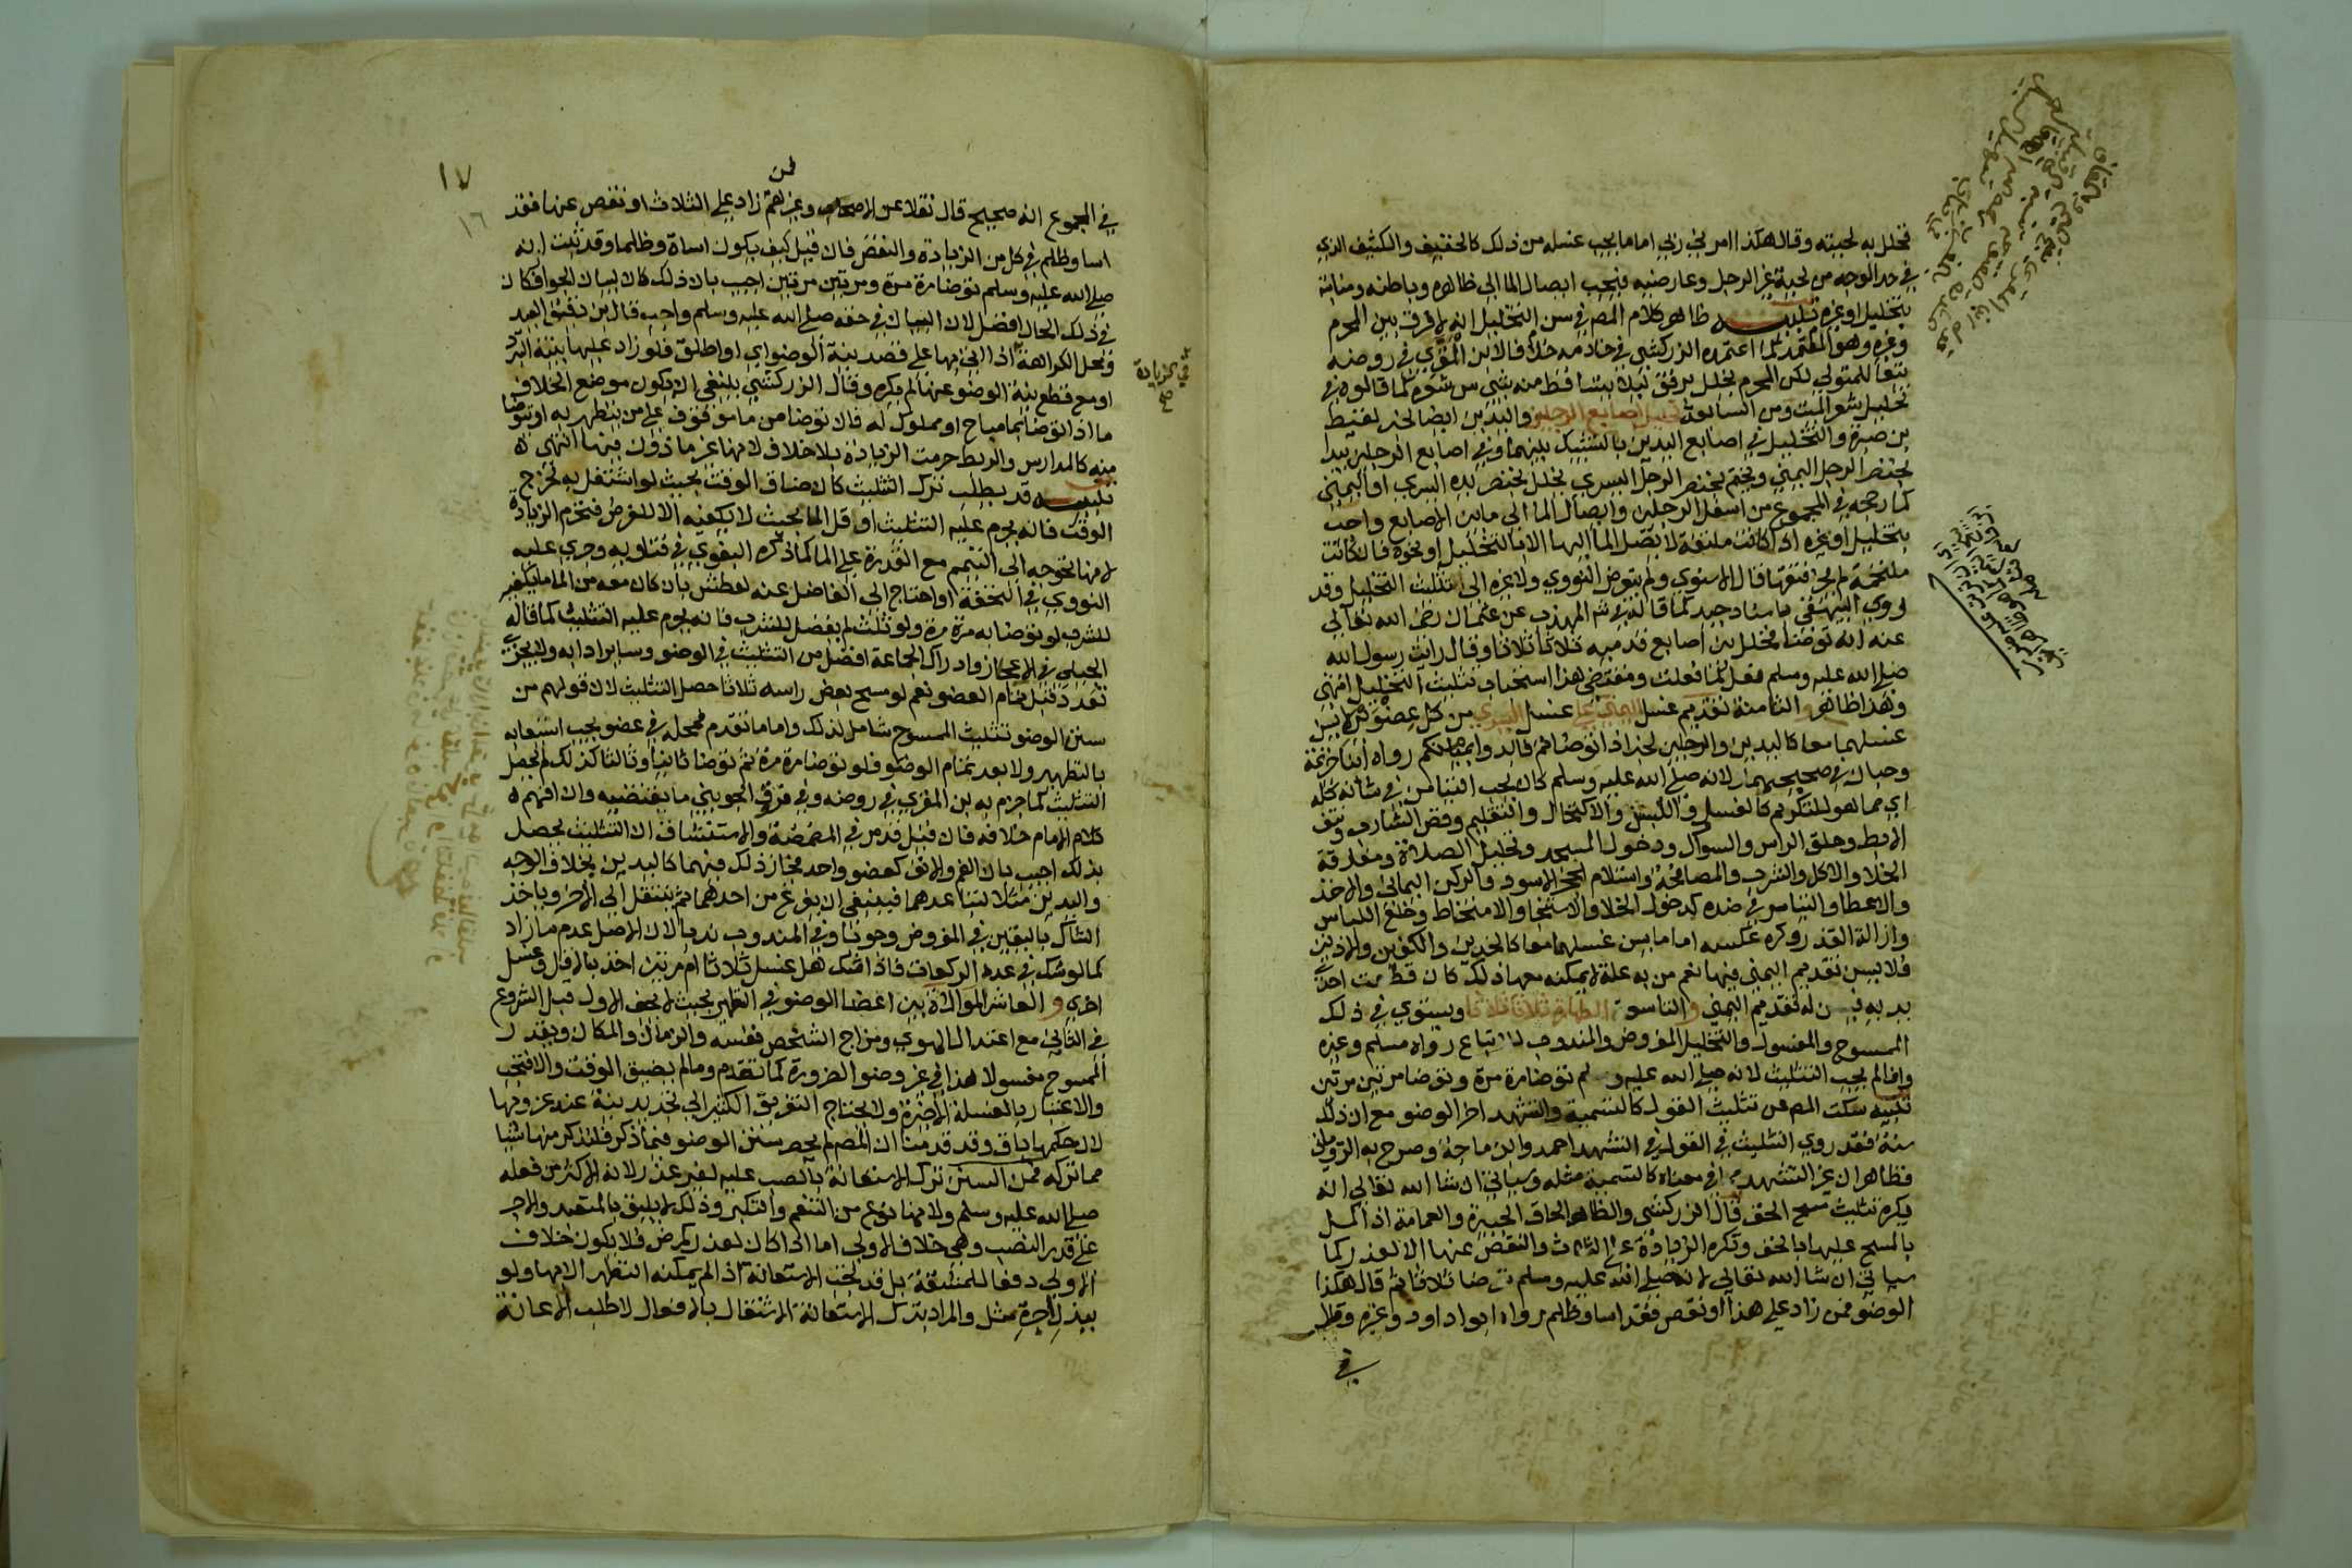 فخلل به لحيته وقال هكذا امرني ربي اما ما يجب غسله من ذلك كالخفيف والكثيف الذي
في حد الوجه من لحية غير الرجل وعارضيه فيجب ايصال الما الى ظاهره وباطنه ومنابته
بتخليل او غيره تنبيه ظاهر كلام المص في سن التخليل انه لا فرق بين المحرم
وغيره وهو المعتمد كما اعتمده الزركشي في خادمه خلافا لابن المقري في روضه
تبعا للمتولي لكن المحرم يخلل برفق ليلا يتساقط منه شي من شعره كما قالوه في
تخليل شعر الميت ومن السابعة تخليل اصابع الرجلين واليدين ايضا لخبر لقيط
بن صبرة والتخليل في اصابع اليدين بالتشبيك بينهما وفي اصابع الرجلين يبدا
بخنصر الرجل اليمنى ويختم بخنصر الرجل اليسرى يخلل بخنصر يده اليسرى او اليمنى
كما رجحه في المجموع من اسفل الرجلين وايصال الما الى ما بين الاصابع واجب
بتخليل او غيره اذا كانت ملتفة لا يصل الما اليها الا بالتخليل او نحوه فان كانت
ملتحمة لم يجز فتقها قال الاسنوي ولم يتعرض النووي ولا غيره الى تثليث التخليل وقد
روى البيهقي باسناد جيد كما قاله في شرح المهذب عن عثمان رضي الله تعالى
عنه انه توضا فخلل بين اصابع قدميه ثلاثا ثلاثا وقال رايت رسول الله
صلى الله عليه وسلم فعل كما فعلت ومقتضى هذا استحباب تثليث التخليل انتهى
وهذا ظاهر و الثامنة تقديم غسل اليمنى على غسل اليسرى من كل عضوين لا يسن
غسلهما معا كاليدين والرجلين لخبر اذا توضاتم فابدوا بميامنكم رواه ابنا خزيمة
وحبان في صحيحيهما ولانه صلى الله عليه وسلم كان يحب التيامن في شانه كله
اي مما هو للتكريم كالغسل واللبس والاكتحال والتقليم وقص الشارب ونتف
الابط وحلق الراس والسواك ودخول المسجد وتحليل الصلاة ومفارقة
الخلا والاكل والشرب والمصافحة واستلام الحجر الاسود والركن اليماني والاخذ
والاعطا والتياسر في ضده كدخول الخلا والاستنجا والامتخاط وخلع اللباس
وازالة القذر وكره عكسه اما ما يسن غسلهما معا كالخدين والكفين والاذنين
فلا يسن تقديم اليمنى فيها نعم من به علة لا يمكنه معها ذلك كان قطعت احدى
يديه يسن له تقديم اليمنى و التاسعة الطهارة ثلاثا ثلاثا ويستوي في ذلك
الممسوح والمغسول والتخليل المفروض والمندوب للاتباع رواه مسلم وغيره
وانما لم يجب التثليث لانه صلى الله عليه وسلم توضا مرة مرة وتوضا مرتين مرتين
تنبيه سكت المص عن تثليث القول كالتسمية والتشهد اخر الوضو مع ان ذلك
سنة فقد روي التثليث في القول في التشهد احمد وابن ماجة وصرح به الروياني
فظاهر ان غير التشهد مما في معناه كالتسمية مثله وسياتي ان شا الله تعالى انه
يكره تثليث مسح الخف قال الزركشي والظاهر الحاق الجبيرة والعمامة اذا كمل
بالمسح عليها بالخف وتكره الزيادة على الثلاث والنقص عنها الا لعذر كما
سياتي ان شا الله تعالى لانه صلى الله عليه وسلم توضا ثلاثا ثم قال هكذا
الوضو فمن زاد على هذا او نقص فقد اسا وظلم رواه ابو داود وغيره وقال
في
١٧
١٦
فمن
في المجموع انه صحيح قال نقلا عن الاصحاب وغيرهم زاد على الثلاث او نقص عنها فقد
اسا وظلم في كل من الزيادة والنقص فان قيل كيف يكون اساة وظلما وقد ثبت انه
صلى الله عليه وسلم توضا مرة مرة ومرتين مرتين اجيب بان ذلك كان لبيان الجواز فكان
في ذلك الحال افضل لان البيان في حقه صلى الله عليه وسلم واجب قال بن دقيق العيد
ومحل الكراهة اذا اتى بها على قصد نية الوضو اي او اطلق فلو زاد عليها بنية التبرد
في الزيادة
صح
او مع قطع نية الوضو عنها لم يكره وقال الزركشي ينبغي ان يكون موضع الخلاف
ما اذا توضا بما مباح او مملوك له فان توضا من ما موقوف على من يتطهر به او يتوضا
منه كالمدارس والربط حرمت الزيادة بلا خلاف لانها غير ماذون فيها انتهى
تنبيه قد يطلب ترك التثليث كان ضاق الوقت بحيث لو اشتغل به لخرج
الوقت فانه يحرم عليه التثليث او قل الما بحيث لا يكفيه الا للفرض فتحرم الزيادة
لانها تحوجه الى التيمم مع القدرة على الما كما ذكره البغوي في فتاويه وجرى عليه
النووي في التحفة او احتاج الى الفاضل عنه لعطش بان كان معه من الما ما يكفيه
للشرب لو توضا به مرة مرة ولو ثلث لم يفضل للشرب فانه يحرم عليه التثليث كما قاله
الجيلي في الاعجاز وادراك الجماعة افضل من التثليث في الوضو وساير ادابه ولا يجزي
تعدد قبل تمام العضو نعم لو مسح بعض راسه ثلاثا حصل التثليث لان قولهم من
سنن الوضو تثليث الممسوح شامل لذلك واما ما تقدم فمحله في عضو يجب استيعابه
بالتطهير ولا بعد تمام الوضو فلو توضا مرة مرة ثم توضا ثانيا وثالثا كذلك لم يحصل
التثليث كما جزم به ابن المقري في روضه وفي فروق الجويني ما يقتضيه وان افهم
كلام الامام خلافه فان قيل قد مر في المضمضة والاستنشاق ان التثليث يحصل
بذلك اجيب بان الفم والانف كعضو واحد فجاز ذلك فيهما كاليدين بخلاف الوجه
واليدين مثلا لتباعدهما فينبغي ان يفرغ من احدهما ثم ينتقل الى الاخر وياخذ
الشاك باليقين في المفروض وجوبا وفي المندوب ندبا لان الاصل عدم ما زاد
كما لو شك في عدد الركعات فاذا شك هل غسل ثلاثا ام مرتين اخذ بالاقل وغسل
اخرى و العاشرة الموالاة بين اعضا الوضو في التطهير بحيث لا يجف الاول قبل الشروع
في الثاني مع اعتدال الهوى ومزاج الشخص نفسه والزمان والمكان ويقدر
الممسوح مغسولا هذا في غير وضو الضرورة كما تقدم وما لم يضيق الوقت والا فتجب
والاعتبار بالغسلة الاخيرة ولا يحتاج التفريق الكثير الى تجديد نية عند عزوبها
لان حكمها باق وقد قدمنا ان المصم لم يحصر سنن الوضو فيما ذكر فلنذكر منها شيا
مما تركه فمن السنن ترك الاستعانة بالصب عليه لغير عذر لانه الاكثر من فعله
صلى الله عليه وسلم ولانها نوع من التنعم والتكبر وذلك لا يليق بالمتعبد والاجر
على قدر النصب وهي خلاف الاولى اما اذا كان لعذر كمرض فلا يكون خلاف
الاولى دفعا للمشقة بل قد تجب الاستعانة اذا لم يمكنه التطهر الا بها ولو
ببذل اجرة مثل والمراد بترك الاستعانة الاشتغال بالافعال لا طلب الاعانة